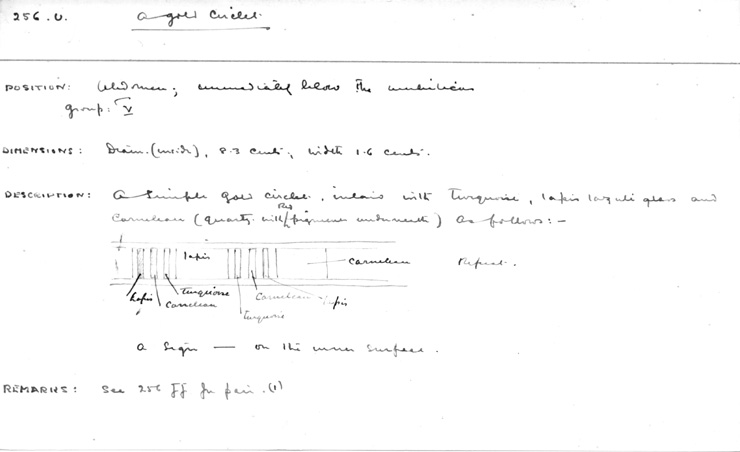 256.U. A gold circlet.
POSITION: Abdomen; immediately below the umbilicus
group: V
DIMENSIONS: Diam. (inside), 8.3 cents; width 1.6 cents.
DESCRIPTION: A simple gold circlet, inlaid with Turquoise, lapis lazuli glass and
Carnelian (quartz with Red pigment underneath) as follows:-
lapis Carnelian Repeat.
Lapis Turquoise Carnelian lapis
Carnelian turquoise
A sign — on the inner surface.
REMARKS: See 256 FF for pair. (1)